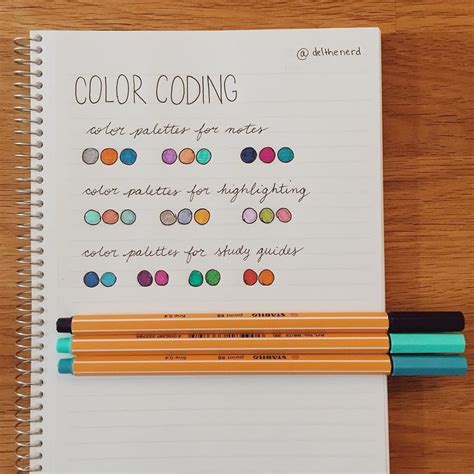 @delthenerd
COLOR CODING
color palettes for notes
color palettes for highlighting
color palettes for study guides
STABILO point 88 fine 0,4
STABILO point 88 fine 0,4